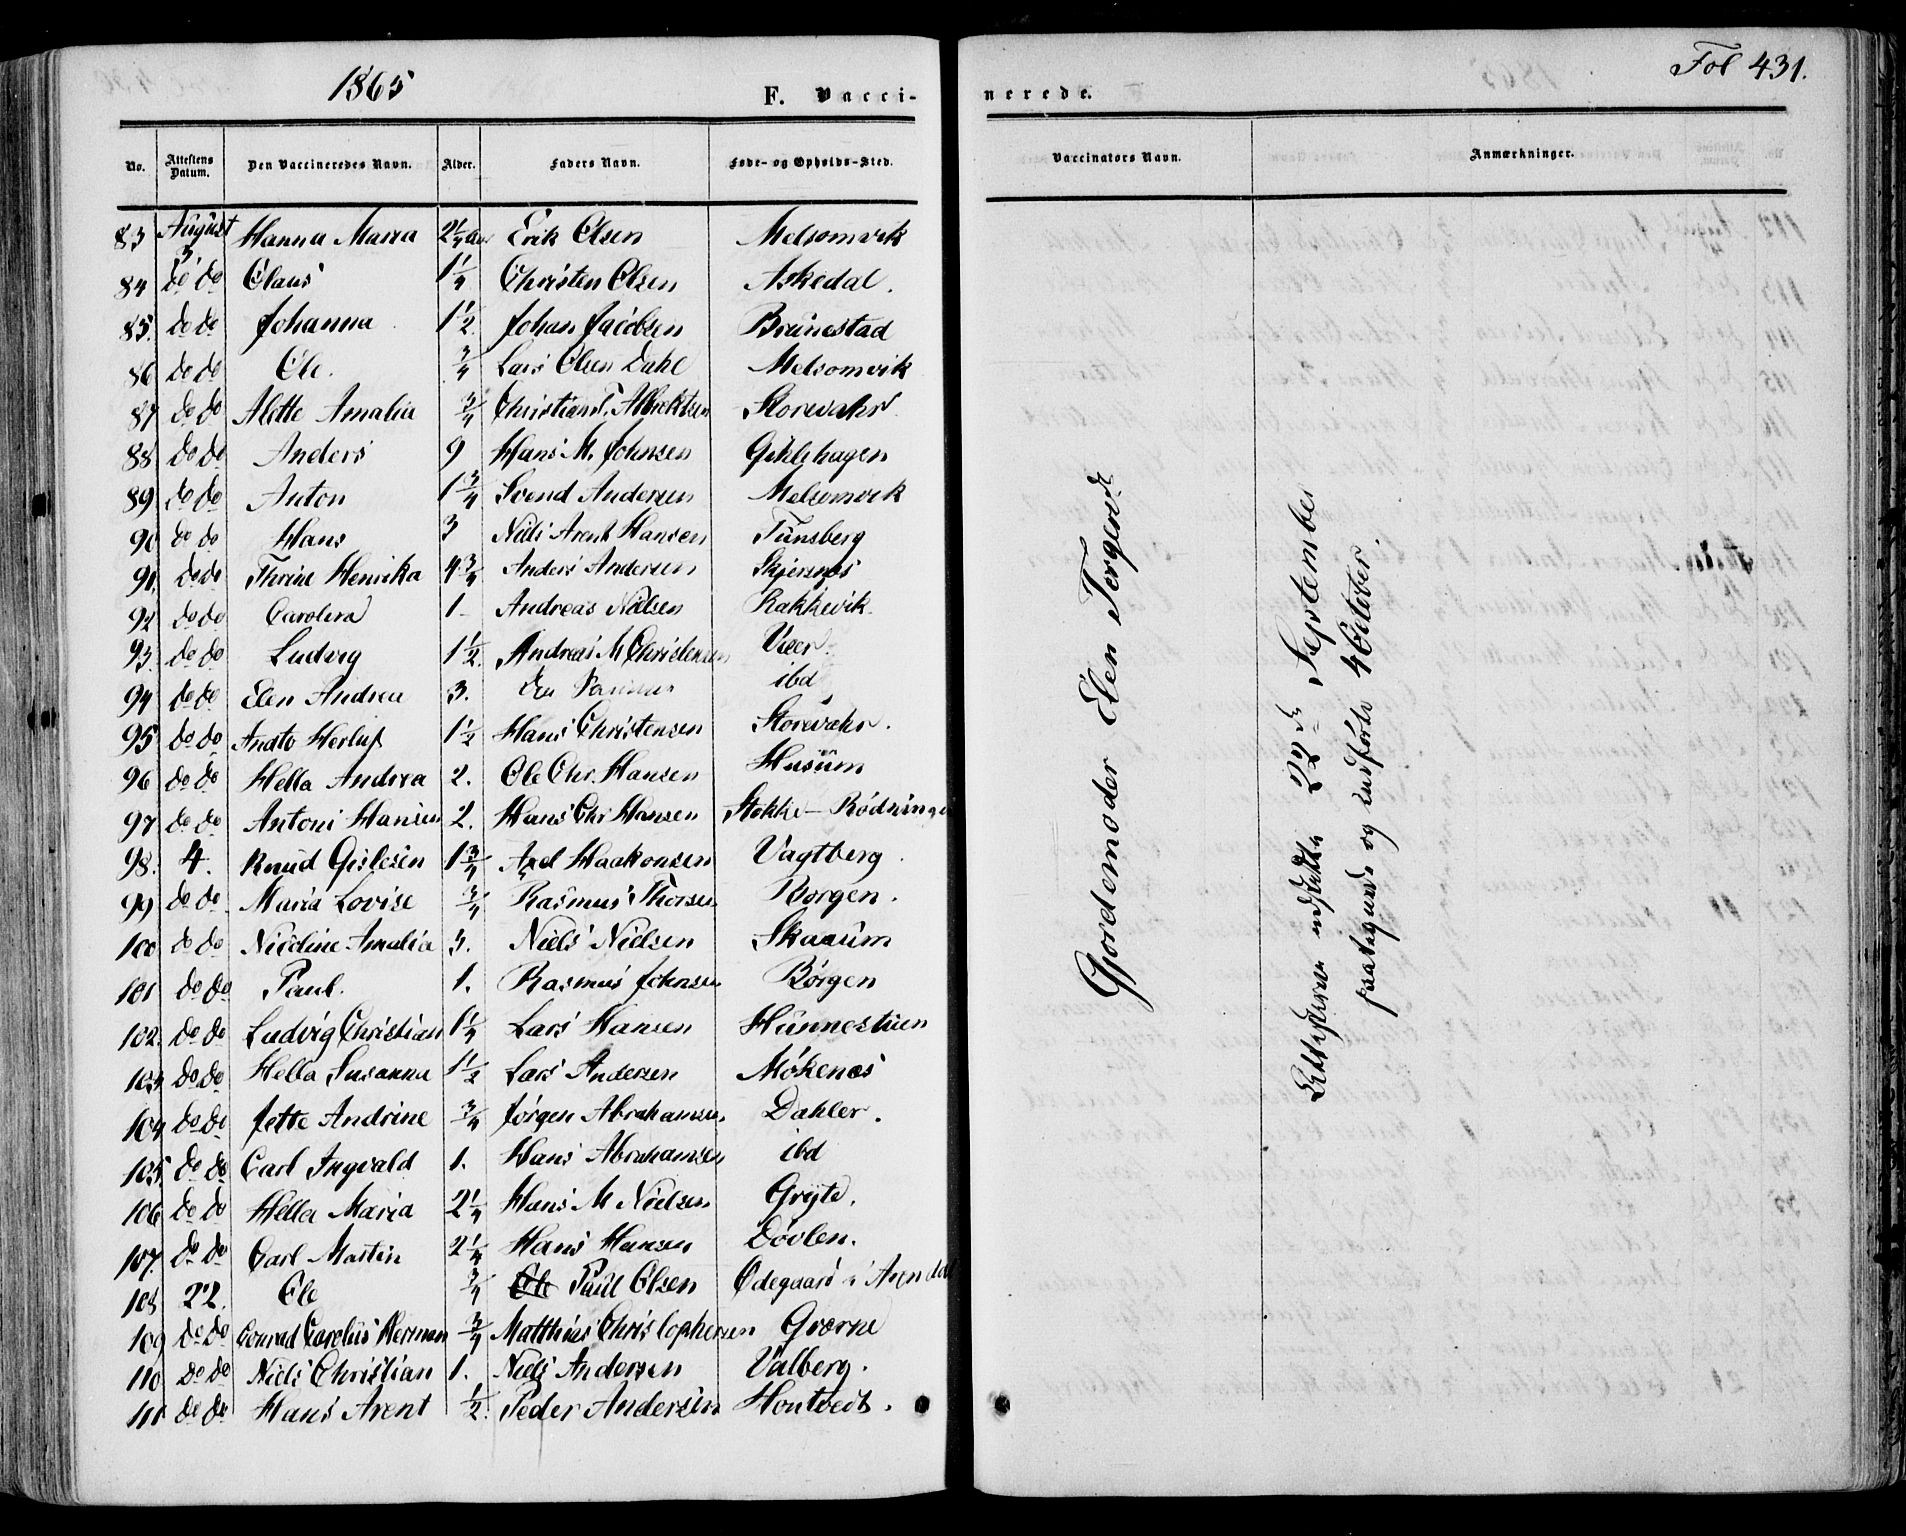 1865
F. Vacci-
nerede.
Fol 431.
No. Attestens Datum. Den Vaccineredes Navn. Alder. Faders Navn. Føde- og Opholds-Sted. Vaccinators Navn. Anmærkninger.
83 August 3 Hanna Maria 2 1/4 Aar Erik Olsen Melsomvik
84 do do Olaus 1 1/4 Christen Olsen Askedal.
85. do do Johanna 1 1/2 Johan Jacobsen Brunestad
86 do do Ole. 3/4 Lars Olsen Dahl Melsomvik
87 do do Alette Amalia 3/4 Christian T. Albrektsen Storevahr
88 do do Anders 9 Hans M. Johnsen Gihlehagen
89 do do Anton 1 3/4 Svend Andersen Melsomvik
90 do do Hans 3 Niels Arent Hansen Tünsberg
91. do do Thrine Henrika 4 3/4 Anders Andersen Skjersnes
92 do do Carolina 1 Andreas Nielsen Rakkevik.
93. do do Ludvig 1 1/2. Andreas M Christensen Vier.
94 do do Elen Andrea 3. ibd
95 do do Andto Herluf 1 1/2 Hans Christensen Storevahr.
96 do do Hella Andrea 2. Ole Chr. Hansen Husüm
97 do do Antoni Hansen 2. Hans Chr Hansen Stokke - Rødninge
98. 4. Knud Gislesen 1 3/4 Axel Haakonsen Vagtberg
99 do do Maria Lovise 3/4 Rasmus Thorsen Borgen.
100 do do Nicoline Amalia 3. Niels Nielsen Skaaüm
101 do do Paul. 1. Rasmus Johnsen Børgen
102. do do Ludvig Christian 1 1/4 Lars Hansen Hünnestuen
103 do do Hella Susanna 1 1/2 Lars Andersen Møkenes
104 do do Jette Andrine 3/4 Jørgen Abrahamsen Dahler.
105. do do Carl Ingvald 1. Hans Abrahamsen ibd
106 do do Hella Maria 2 1/4 Hans M Nielsen Gryte.
107. do do Carl Martin 2 1/4 Hans Hansen Døvlen.
108 22. Ole 3/4 Ole Paul Olsen Ødegaard i Arendal
109 do do Conrad Carelius Herman 3/4 Matthias Christophersen Grorne
110 do do Niels Christian 1. Niels Andersen Valberg.
111 do do Hans Arent 1/2. Peder Andersen Hontvedt.
Gjordemoder Elen Torgersdt
22de September
og indførte 4 October.